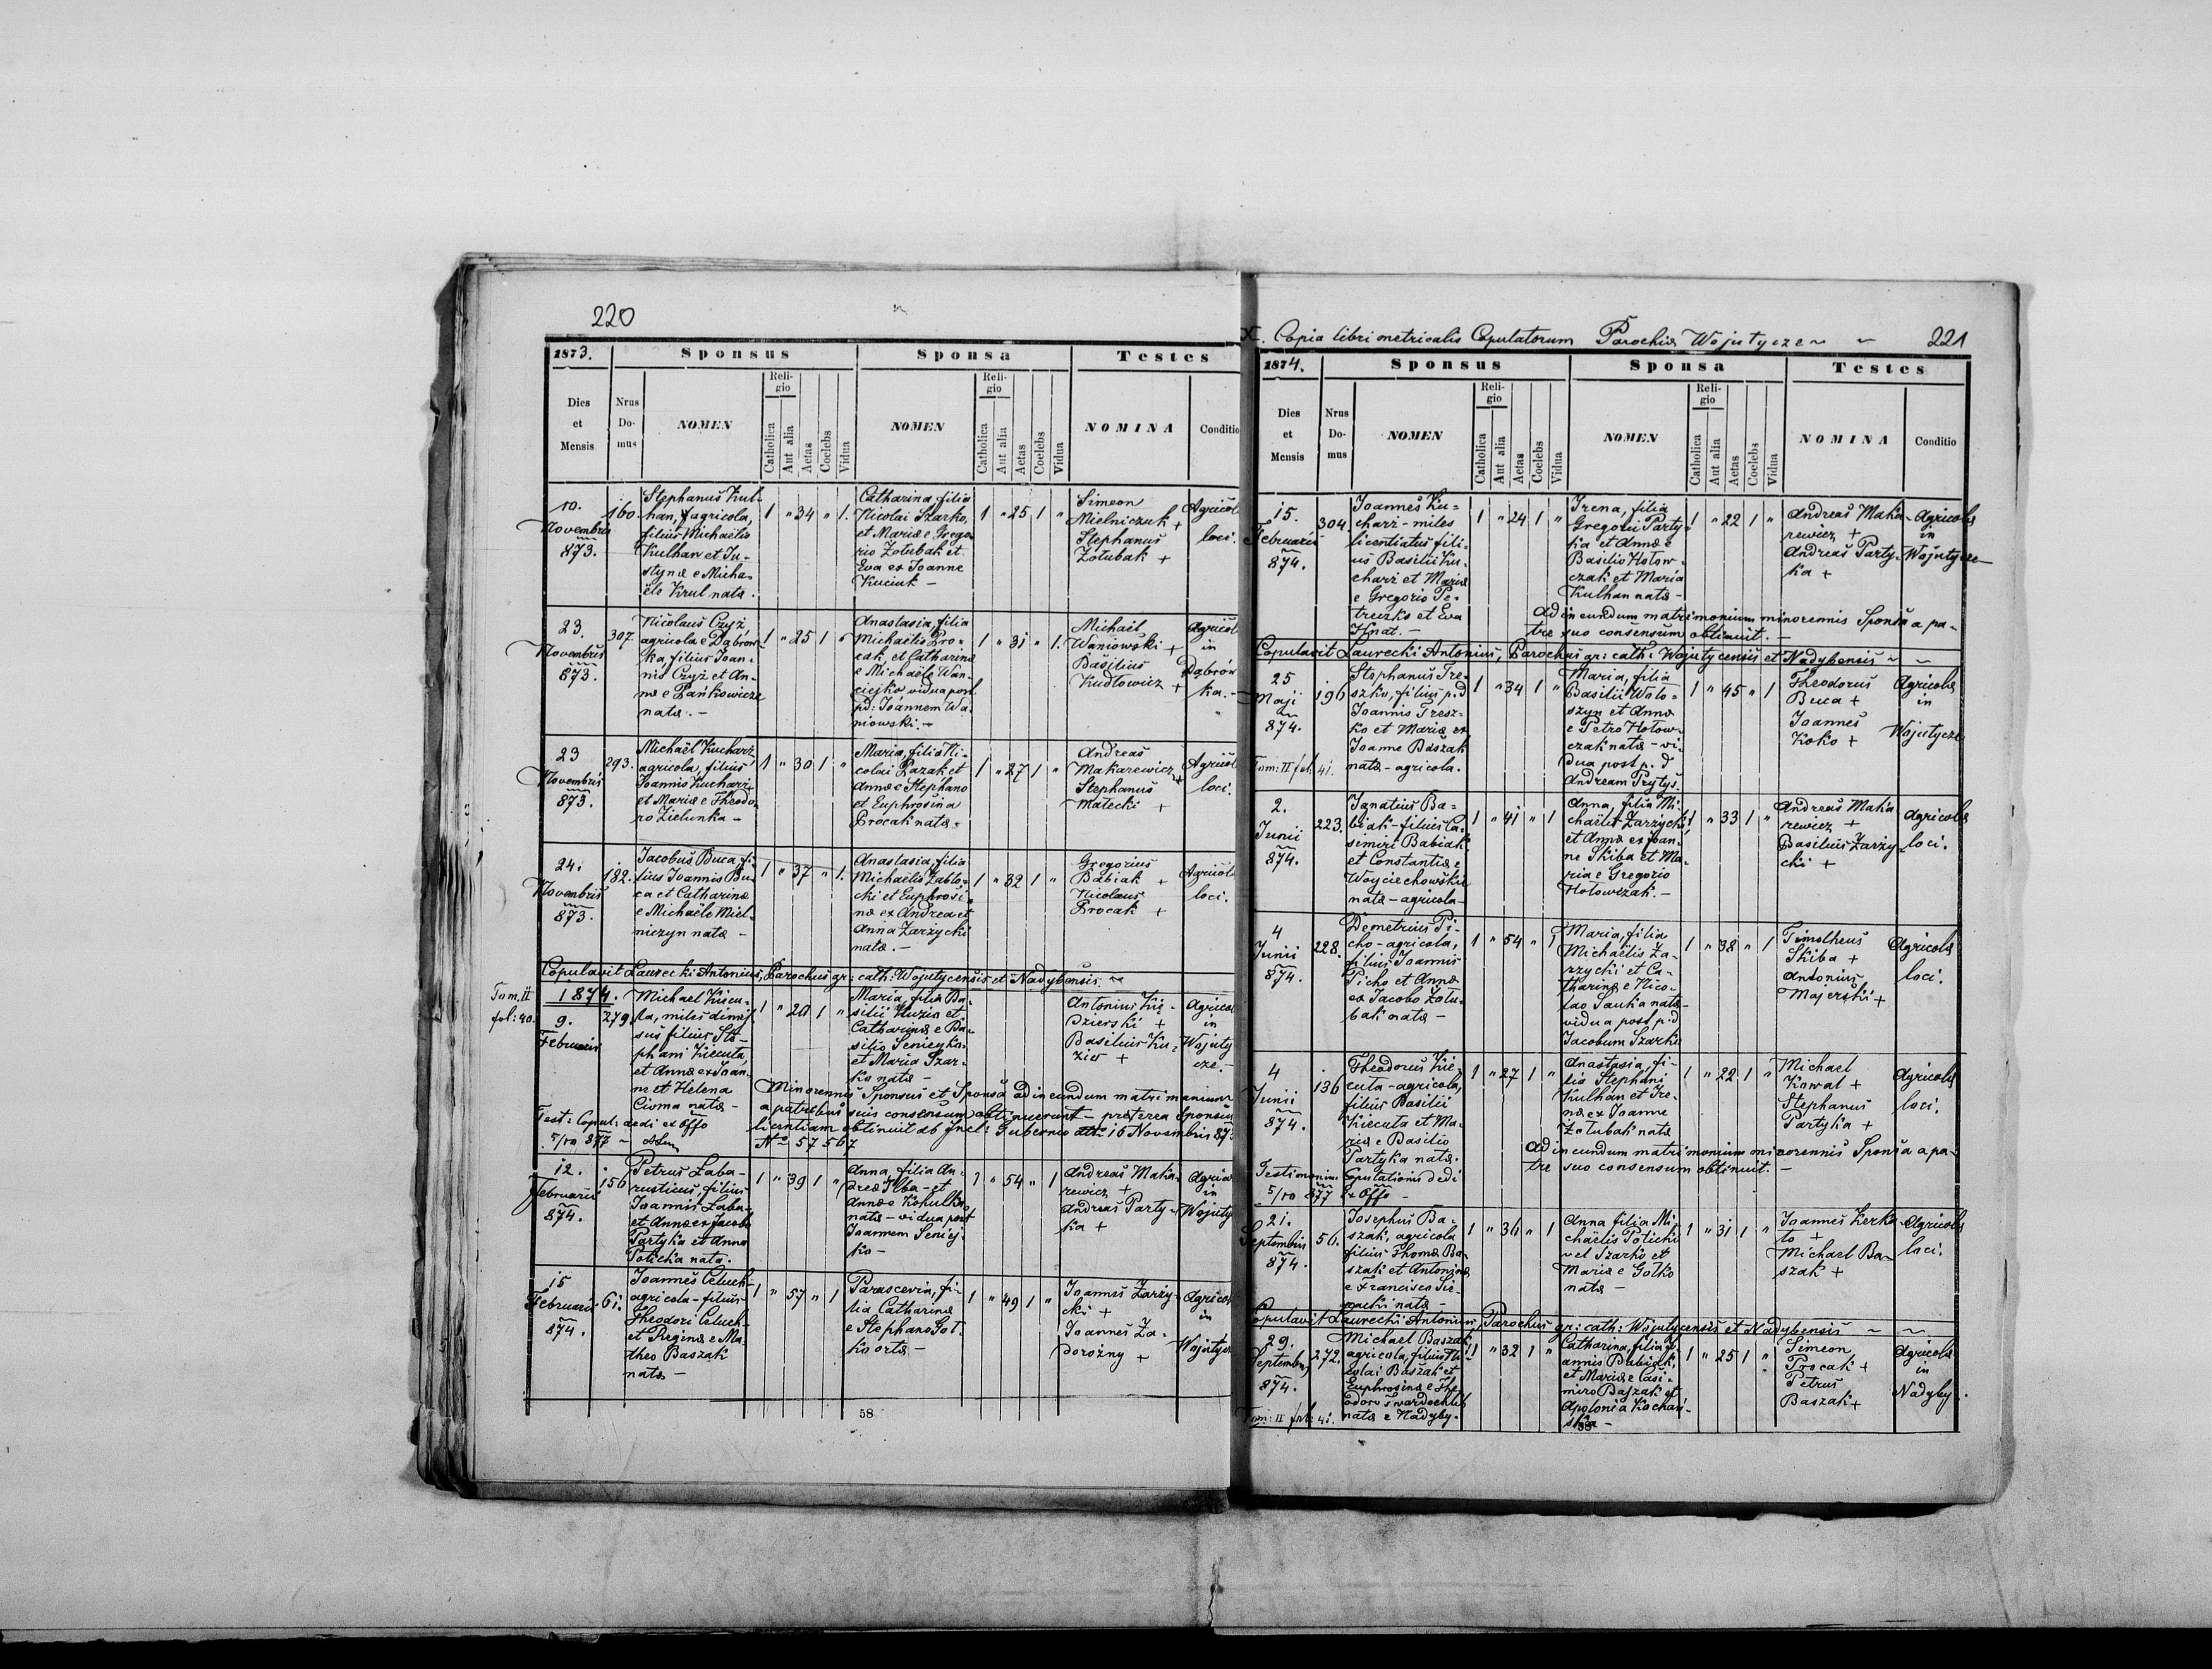 220
1873.
Sponsus
Sponsa
Testes
Dies et Mensis
Nrus Domus
NOMEN
Religio
Catholica
Aut alia
Aetas
Coelebs
Vidua
NOMEN
Religio
Catholica
Aut alia
Aetas
Coelebs
Vidua
NOMINA
Conditio
10.
Novembris
873.
160.
Stephanus Kul-
han, agricola,
filius Michaëlis
Kulhan et Ju-
stynæ e Micha-
ële Krul nata.
1 " 34 " 1.
Catharina, filia
Nicolai Szarko,
et Mariæ e Grego-
rio Zołubak et
Eva ex Joanne
Kuciuk –
1 " 25 1 "
Simeon
Mielniczuk +
Stephanus
Zołubak +
Agricol
loci.
23.
Novembris
873.
307.
Nicolaus Czyż
agricola e Dąbrow-
ka, filius Joan-
nis Czyż et An-
næ e Pańkowicze
nata. –
1 " 25 1 "
Anastasia, filia
Michaëlis Pro-
cak, et Catharina
e Michaële Wan-
ciejko, vidua post
pd: Joannem Wa-
niowski. –
1 " 31 " 1.
Michaël
Waniowski +
Basilius
Kudłowicz +
Agricol
in
Dąbrów
ka. –
23
Novembris
873.
293.
Michaël Kucharz
agricola, filius
Joannis Kucharz
et Mariæ e Theodo-
ro Zielunka –
1 " 30 1 "
Maria, filia Ni-
colai Pazak et
Annæ e Stephano
et Euphrosina
Procak nata.
1 " 27 1 "
Andreas
Makarewicz +
Stephanus
Małecki +
Agricol
loci.
24.
Novembris
873.
182.
Jacobus Buca, fi-
lius Joannis Bu-
ca et Catharinæ
e Michaële Miel-
niczyn nata –
1 " 37 " 1.
Anastasia, filia
Michaëlis Zabło-
cki et Euphrosi-
næ ex Andrea et
Anna Zarzycki
nata. –
1 " 32 1 "
Gregorius
Babiak +
Nicolaus
Procak +
Agricol
loci.
Copulavit Laurecki Antonius, Parochus gr: cath: Wojutycensis et Nadybensis. ~
Tom. II
fol: 40.
1874.
9.
Februarii
279.
Michael Kiecu-
ła, miles dimis-
sus filius Ste-
phani Kiecuła,
et Annæ ex Joan-
ne et Helena
Cioma nata –
1 " 20 1 "
Maria, filia Ba-
silii Kuzio et
Catharinæ e Ba-
silio Senieyko
et Maria Szar-
ko nata –
Antonius Kie-
dzierski +
Basilius Ku-
zio +
Agricol
in
Wojuty
cze. –
Minorennis Sponsus et Sponsa ad ineundum matrimonium
a patribus suis consensum obtinuerunt – præterea Sponsus
licentiam obtinuit ab Incl: Gubernio dtto 16 Novembris 873
No 57567
Test: Copul: dedi ex offo
5/10 877 ~
12.
Februarii
874.
156
Petrus Łaba-
rusticus, filius
Joannis Łaba-
et Annæ ex Jacobo
Partyka et Anna
Potiecka nata.
1 " 39 1 "
Anna, filia An-
dreæ Ilba – et
Annæ e Kohulka
nata – vidua post
Joannem Seniej-
ko –
1 " 54 " 1
Andreas Maka-
rewicz +
Andreas Party-
ka +
Agricol
in
Wojuty
15
Februarii
874.
61.
Joannes Celuch
agricola – filius
Theodori Celuch-
et Reginæ e Ma-
theo Baszak
nata –
1 " 57 " 1
Parascevia, fi-
lia Catharinæ
e Stephano Got-
ko orta –
1 " 49 1 "
Joannes Zarzy-
cki +
Joannes Za-
dorożny +
Agricol
in
Wojutycz
58
X. Copia libri metricalis Copulatorum Parochiæ Wojutycze ~ ~
221
1874.
Sponsus
Sponsa
Testes
Dies et Mensis
Nrus Domus
NOMEN
Religio
Catholica
Aut alia
Aetas
Coelebs
Vidua
NOMEN
Religio
Catholica
Aut alia
Aetas
Coelebs
Vidua
NOMINA
Conditio
15.
Februarii
874.
304.
Joannes Ku-
charz – miles
licentiatus fili-
us Basilii Ku-
charz et Mariæ
e Gregorio Pe-
treczko et Eva
Hnat. –
1 " 24 1 "
Irena, filia
Gregorii Party-
ka et Annæ e
Basilio Hołow-
czak et Maria
Kulhan nata –
1 " 22 1 "
Andreas Maka-
rewicz +
Andreas Party-
ka +
Agricolæ
in
Wojutycze –
Ad ineundum matrimonium minorennis Sponsa a pa-
tre suo consensum obtinuit. –
Copulavit Laurecki Antonius, Parochus gr: cath: Wojutycensis et Nadybensis ~ ~
25
Maji
874.
Tom: II fol: 41.
196
Stephanus Tre-
szko, filius p.d
Joannis Tresz-
ko et Mariæ ex
Joanne Baszak
nata – agricola.
1 " 34 1 "
Maria, filia
Basilii Woło-
szyn et Annæ
e Petro Hołow-
czak nata – vi-
dua post p. d
Andream Prytys.
1 " 45 " 1
Theodorus
Buca +
Joannes
Koko +
Agricolæ
in
Wojutycze
2.
Junii
874.
223.
Ignatius Ba-
biak – filius Ca-
simiri Babiak
et Constantiæ e
Woyciechowskie
nata – agricola –
1 " 41 " 1
Anna, filia Mi-
chaëlis Zarzycki
et Annæ ex Joan-
ne Skiba et Ma-
ria e Gregorio
Hołowczak. –
1 " 33 1 "
Andreas Maka
rewicz +
Basilius Zarzy-
cki +
Agricolæ
loci.
4
Junii
874.
228.
Demetrius Pi-
cho – agricola,
filius Joannis
Picho et Annæ
ex Jacobo Zołu-
bak nata –
1 " 54 " 1
Maria, filia
Michaëlis Za-
rzycki et Ca-
tharinæ e Nico-
lao Sauka nata –
vidua post p.d
Jacobum Szarko
1 " 38 " 1
Timotheus
Skiba +
Antonius
Majerski +
Agricolæ
loci.
4
Junii
874.
136
Theodorus Kie-
cuła – agricola,
filius Basilii
Kiecuła et Ma-
riæ e Basilio
Partyka nata.
1 " 27 1 "
Anastasia, fi-
lia Stephani
Kulhan et Ire-
næ ex Joanne
Zołubak nata
1 " 22 1 "
Michael
Kowal +
Stephanus
Partyka +
Agricolæ
loci.
Ad ineundum matrimonium minorennis Sponsa a pa-
tre suo consensum obtinuit. –
Testimonium Copulationis dedi
5/10 877 ex offo –
21.
Septembris
874.
56.
Josephus Ba-
szak, agricola
filius Thomæ Ba-
szak et Antoninæ
e Francisco Sie-
racki nata –
1 " 36 " 1
Anna filia Mi-
chaëlis Potichi
vel Szarko et
Mariæ e Gołko
nata –
1 " 31 1 "
Joannes Kerka-
ło +
Michael Ba-
szak +
Agricolæ
loci.
Copulavit Laurecki Antonius, Parochus gr: cath: Wojutycensis et Nadybensis ~ ~
29.
Septembris
874.
Tom: II fol: 41.
272.
Michael Baszak
agricola, filius Ni-
colai Baszak et
Euphrosinæ e The-
odoro Twardochleb
nata e Nadyby.
1 " 32 1 "
Catharina, filia Jo-
annis Babiak,
et Mariæ e Casi-
miro Baszak et
Apolonia Kochań-
ska –
1 " 25 1 "
Simeon
Procak +
Petrus
Baszak +
Agricolæ
in
Nadyby.
58